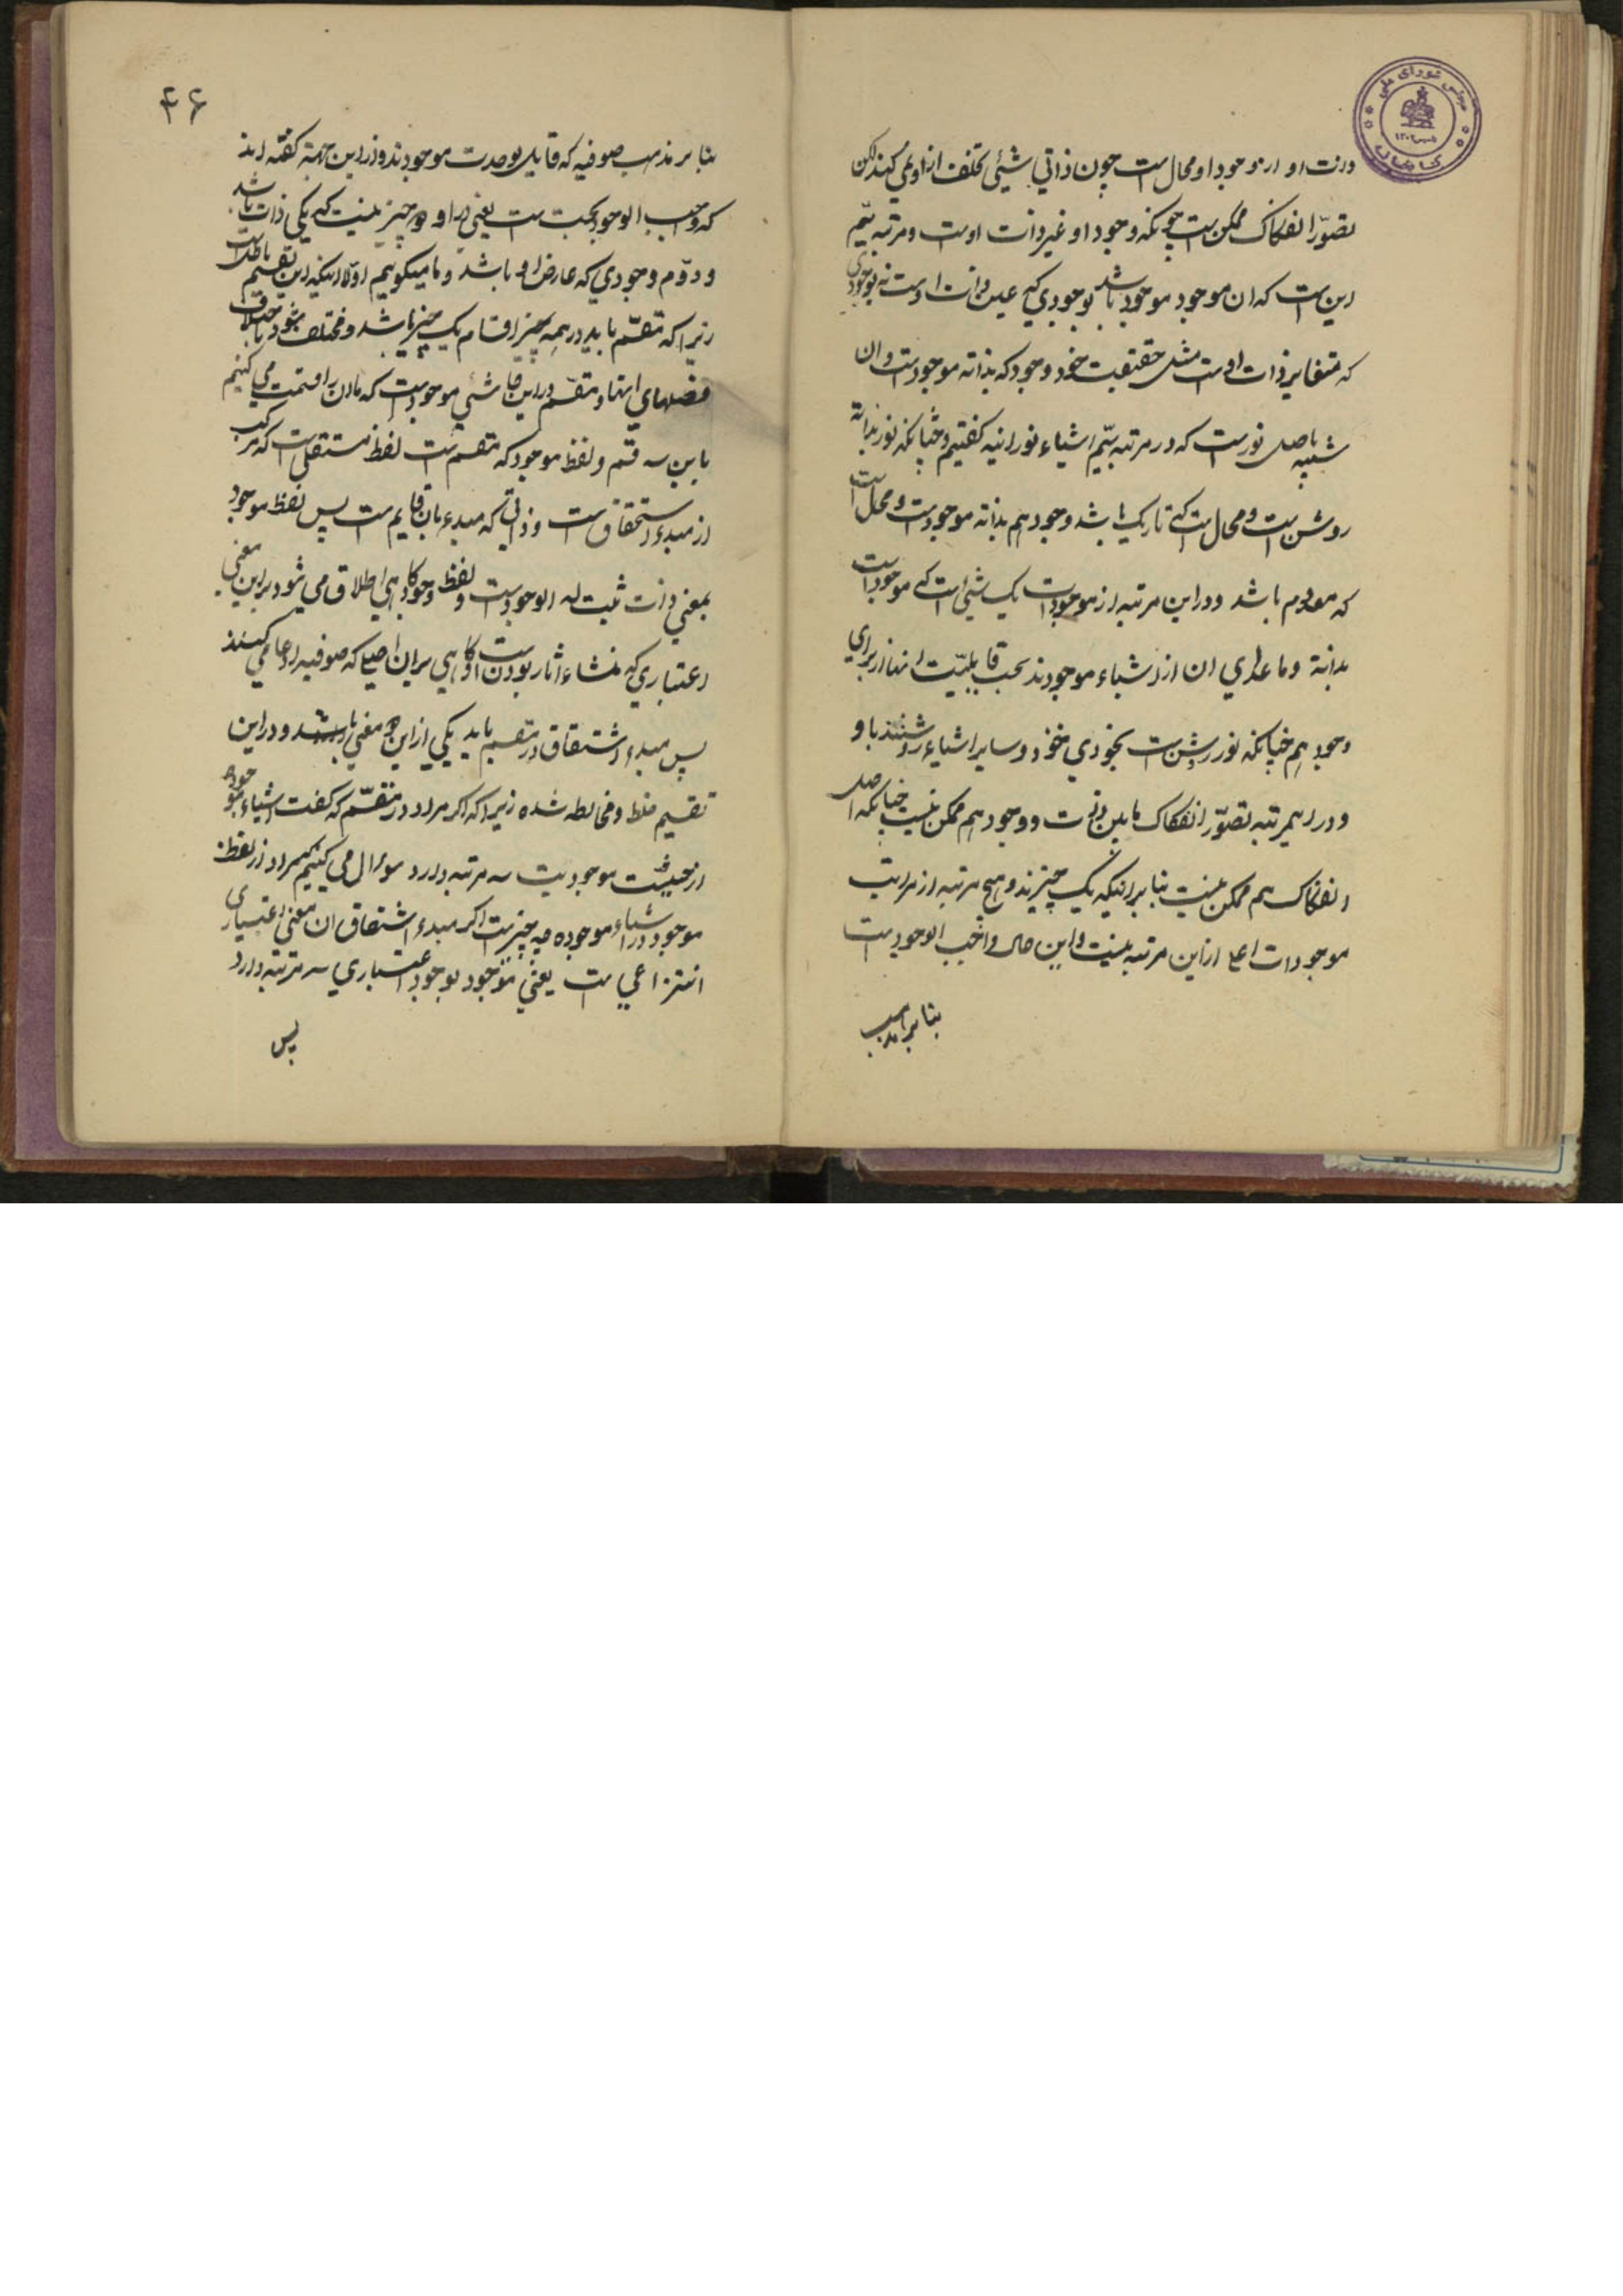 ذات او از وجود او محال است چون ذاتي شيئ تخلف از او نمي كند لكن
تصوّر انفكاك ممكن است چونكه وجود او غير ذات اوست ومرتبه سيّم
اين است كه ان موجود موجود باشد بوجودي كه عين ذات اوست نه بوجودي
كه متغاير ذات اوست مثل حقيقت خود وجود كه بذاته موجود است وان
شبيه باصل نور است كه در مرتبه سيّم اشياء نورانيه كفتيم وچنانكه نور بذاته
روشن است ومحال است كه تاريك باشد وجود هم بذاته موجود است ومحال است
كه معدوم باشد ودر اين مرتبه از موجودات يك شيئ است كه موجود است
بذاته وما عداي ان از اشياء موجودند بحسب قابليّت انها از براي
وجود هم چنانكه نور روشن است بخودي خود وساير اشياء روشنند باو
ودر اين مرتبه تصوّر انفكاك مابين ذات ووجود هم ممكن نيست چنانكه اصل
انفكاك هم ممكن نيست بنا بر اينكه يك چيزند وهيچ مرتبه از مراتب
موجودات اعلي از اين مرتبه نيست واين حال واجب الوجود است
بنا بر مذهب
۴۶
بنا بر مذهب صوفيه كه قايل بوحدت موجودند واز اين جهة كفته اند
كه واجب الوجود بحت است يعني در او دو چيز نيست كه يكي ذات باشد
ودوّم وجودي كه عارض او باشد وما ميكوييم اوّلا اينكه اين تقسيم باطل است
زيرا كه مقسّم بايد در همه اقسام يك چيز باشد ومختلف نشود باختلاف
فصلهاي انها ومقسّم در اين جا شيئ موجود است كه ما ان را قسمت مي كنيم
باين سه قسم ولفظ موجود كه مقسم است لفظ مشتقي است كه مركب
از مبدء اشتقاق است وذاتي كه مبدء بان قايم است پس لفظ موجود
بمعني ذات ثبت له الوجود است ولفظ وجود كاهي اطلاق مي شود بر اين معني
اعتباري كه منشاء اثار بودن است وكاهي بر ان اصلي كه صوفيه ادعا مي كنند
پس مبدء اشتقاق در مقسم بايد يكي از اين دو معني باشد ودر اين
تقسيم خلط ومغالطه شده زيرا كه اكر مراد در مقسّم كه كفت اشياء موجوده
از حيثيّت موجوديت سه مرتبه دارد سوال مي كنيم كه مراد از لفظ
موجود در اشياء موجوده چه چيز است اكر مبدء اشتقاق ان معني اعتباري
انتزاعي است يعني موجود بوجود اعتباري سه مرتبه دارد
پس